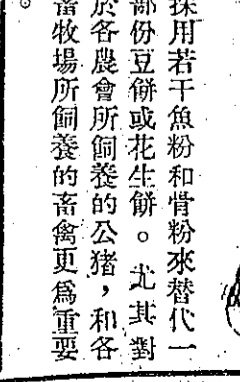 採用若干魚粉和骨粉來替代一
部份豆餅或花生餅。尤其對
於各農會所飼養的公猪，和各
畜牧場所飼養的畜禽更爲重要
。